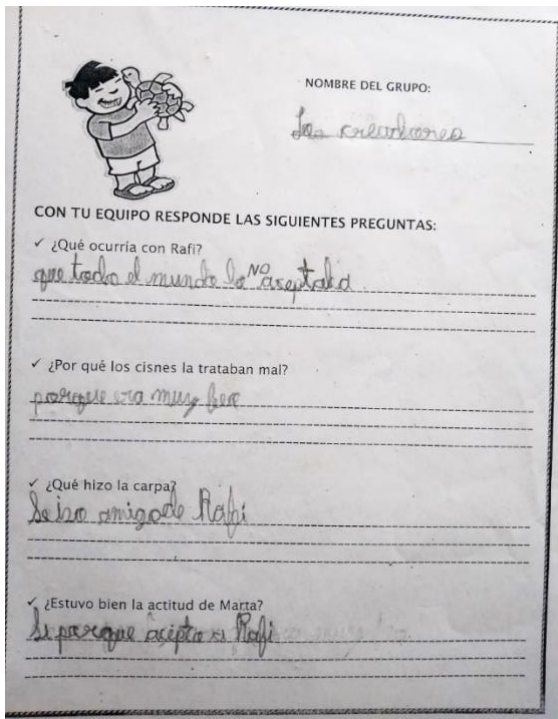 NOMBRE DEL GRUPO:
Los creadores
CON TU EQUIPO RESPONDE LAS SIGUIENTES PREGUNTAS:
✓ ¿Qué ocurría con Rafi?
que todo el mundo la NO aseptaba
✓ ¿Por qué los cisnes la trataban mal?
porque era muy fea
✓ ¿Qué hizo la carpa?
Se iso amigo de Rafi
✓ ¿Estuvo bien la actitud de Marta?
Si porque acepto a Rafi